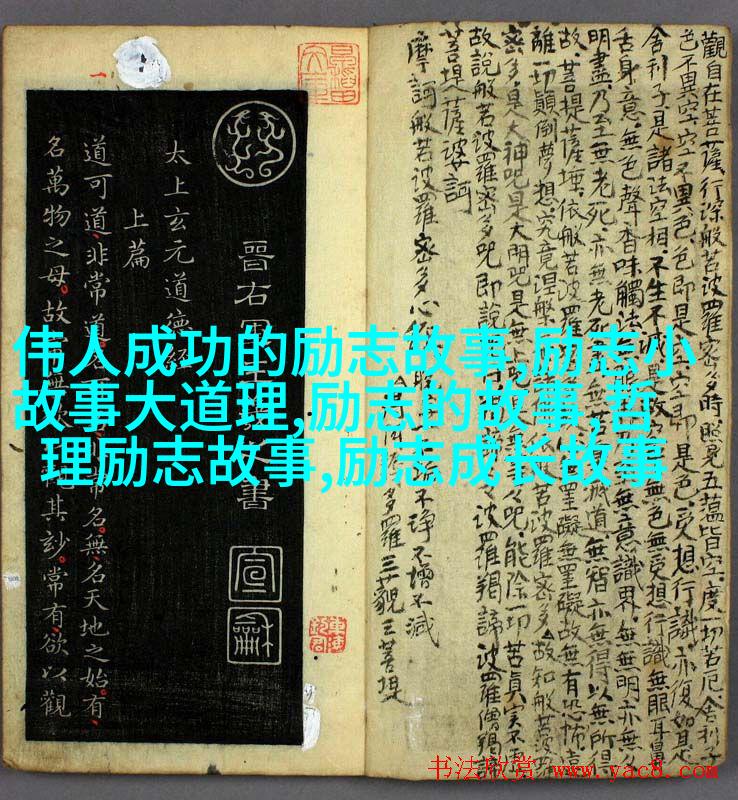 伟人成功的励志故事,励志小
故事大道理,励志的故事,哲
理励志故事,励志成长故事
晉右軍書
宣龢
太上玄元道德經
上篇
道可道非常道常名無名天地之始有
名萬物之母故其妙常有欲以觀
觀自在菩薩行深般若波羅蜜多時照見五蘊皆空度一切苦厄舍利子
色不異空空不異色色即是空即是色受想行識亦復如是
舍利子是諸法空相不生不滅是故無色無受想行識無眼耳鼻
舌身意無色聲香味觸法無眼無意識界無無明亦無
明盡乃至無老死亦無老死無苦滅道無智亦無得以無所得
故菩提薩埵依般若波羅罣礙無罣礙故無有恐怖遠
離一切顛倒夢想究竟涅槃般若波羅密多故知般若波
密多是大神咒是大明咒是無上咒咒能除一切苦真實不
故說般若波羅密多咒即說波羅羯諦波羅僧羯諦
菩提薩婆訶
摩訶般若波羅密多心經
不淨不增不減
多羅三藐三菩提
书法欣赏 www.yac8.com